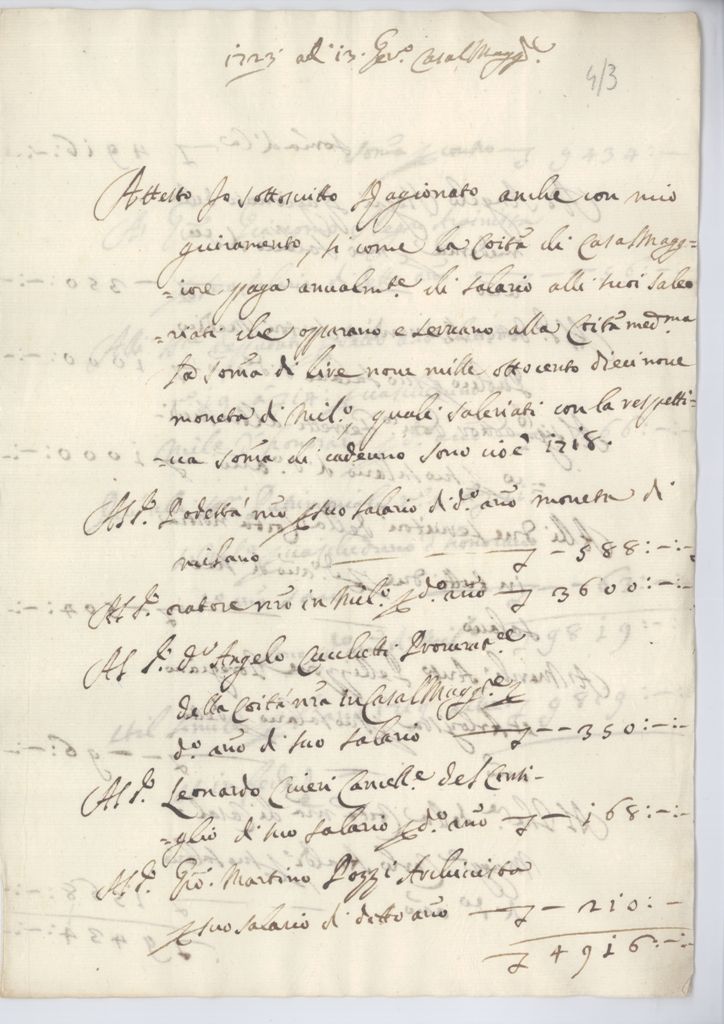 1723 ad' 13. Gen.º Casal Magg.e
4/3
Attesto Io sottoscritto Ragionato anche con mio
giuramento, si come la Coità di Casal Magg-
=iore paga annualm.te di salario alli suoi sala
=riati che operano e servano alla Coità med.ma
la soma di lire nove mille ottocento diecinove
moneta di Mil.º, quali salariati con la respetti-
=ua soma di caduno sono cioè 1718.
Al S.r Podestà nro p suo salario di d.º ano moneta di
milano — 588:-:-
Al S.r oratore nro in Mil.º p d.º ano — 3600:-:-
Al S.r d.r Angelo Procurat.e
della Coità nra in Casal Magg.e p
d.º ano di suo salario — 350:-:-
Al S.r Leonardo Cancell.e del Consi-
=glio di suo salario p d.º ano — 168:-:-
Al S.r Gio. Martino Pozzi Archivista
p suo salario di detto ano — 210:-
4916:-:-